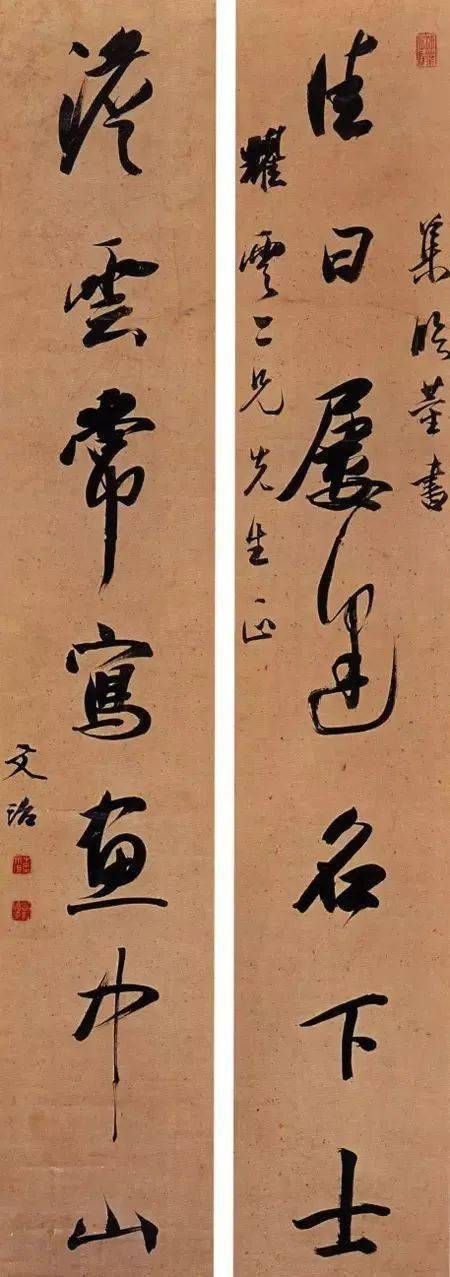 集臨董書
佳日屢逢名下士
耀雲二兄先生正
淡雲常寫畫中山
文治